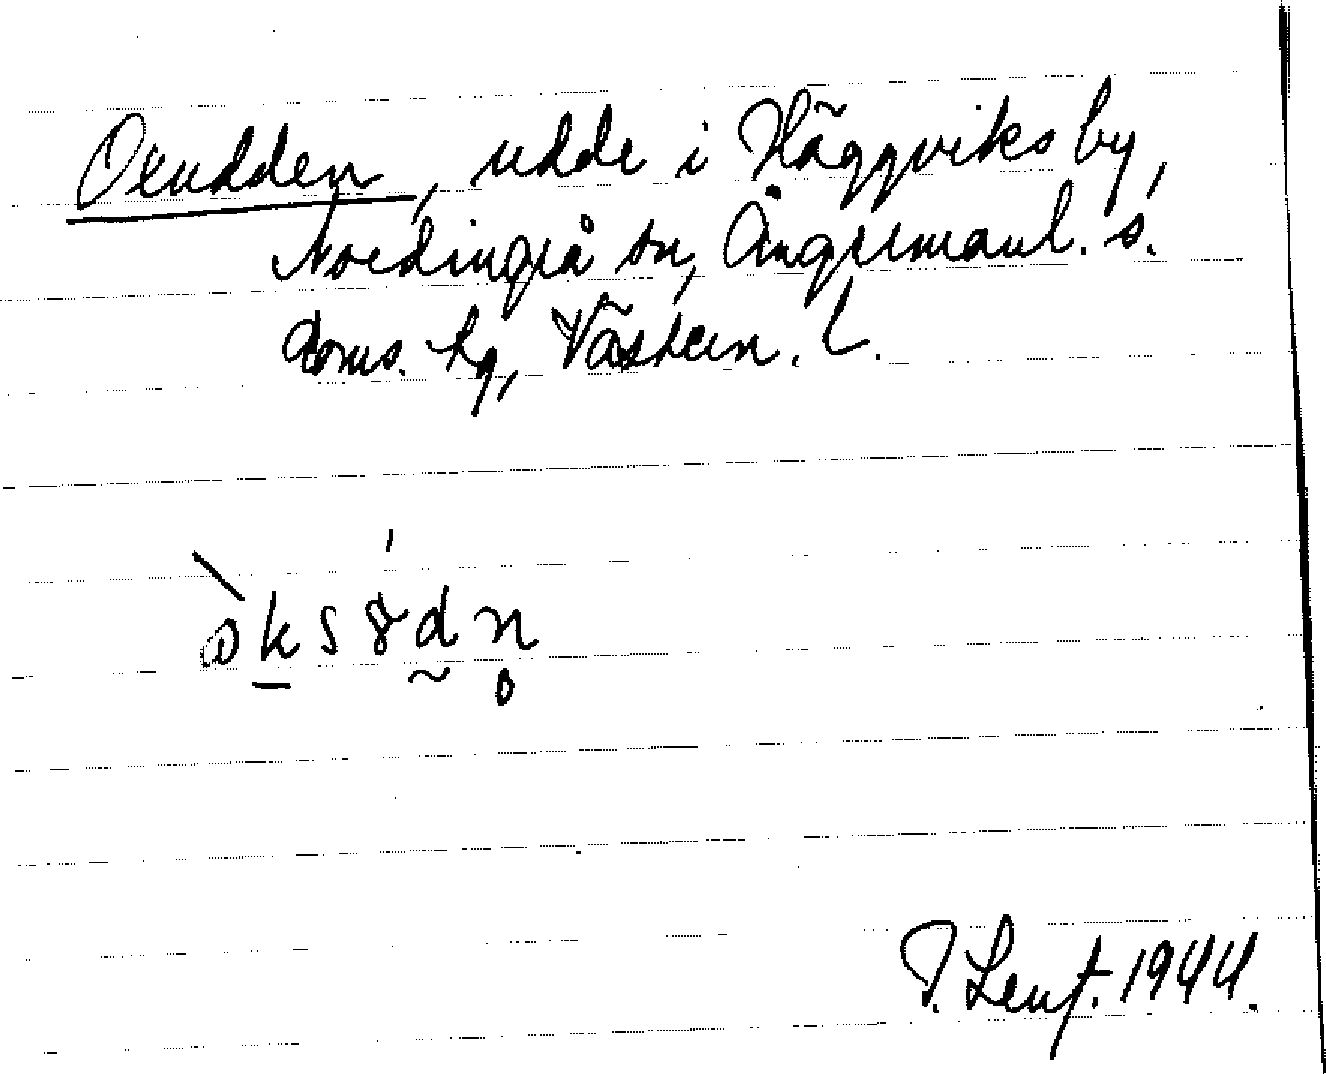 Oxudden, udde i Häggviks by,
Nordingrå sn, Ångermanl. s.
doms. hg, Västern. l.
k s 8 d n
1944.